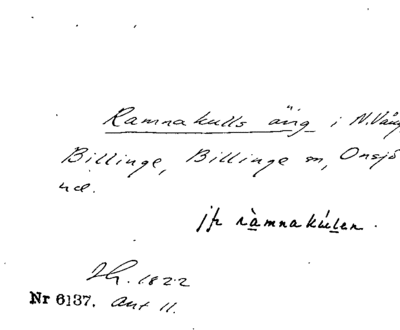 Ramnakulls äng i N. Vång
Billinge, Billinge sn, Onsjö
hd.
jfr ràmnakúlen.
Nr 6137. ant 11.